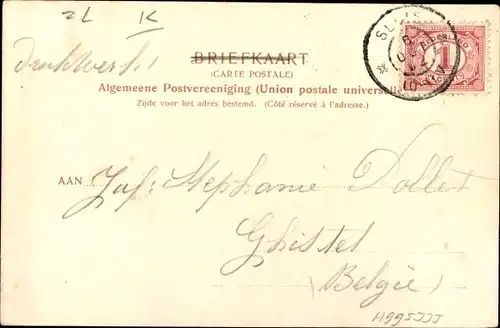 2L K
Drukwerk!
BRIEFKAART
(CARTE POSTALE)
Algemeene Postvereeniging (Union postale universelle)
Zijde voor het adres bestemd. (Côté réservé à l'adresse.)
NEDERLAND
1
AAN Juf: Stephanie Dollet
Ghistel
(Belgie)
H995JJJ